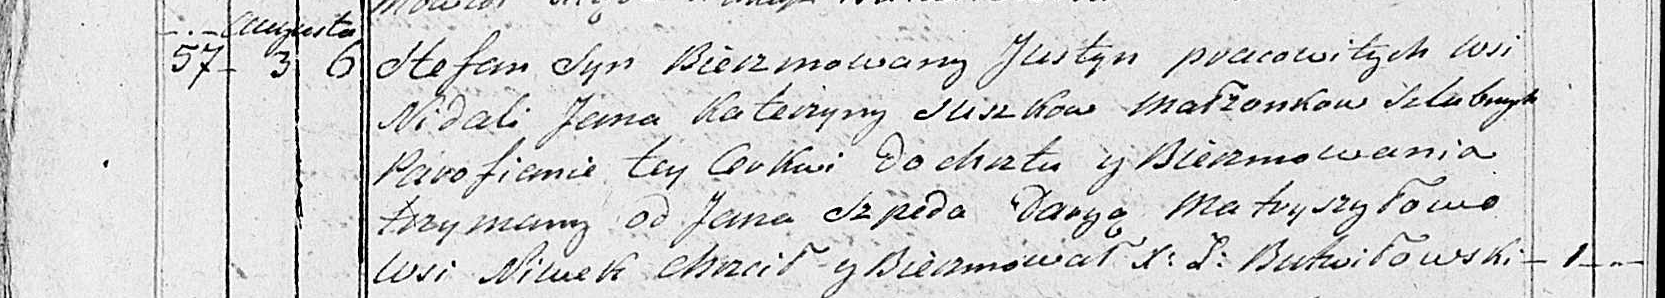 Augusta
57 - 3 6 Stefan Syn Bierzmowany Justyn pracowitych wsi
Nidali Jana Katerzyny Suszkow Małzonkow Szlubnych
Parofianie tey Cerkwi do chrztu y Bierzmowania
trzymany od Jana Szpeda Daryą Matryszyłowo
wsi Niwek chrzcił y Bierzmował X: L: Butwiłowski - 1 -